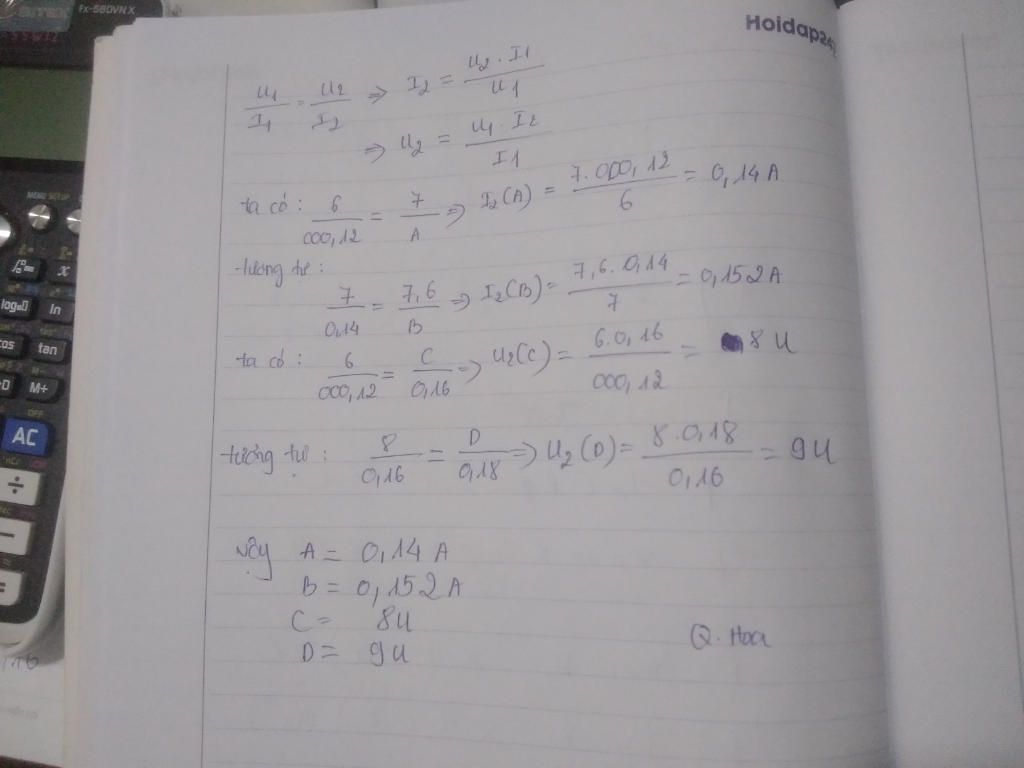 Hoidap247
fx-580VN X
U1/I1 = U2/I2 => I2 = U2 . I1/U1
=> U2 = U1 . I2/I1
ta có : 6/000,12 = 7/A => I2(A) = 7.000,12/6 = 0,14 A
tương tự :
7/0,14 = 7,6/B => I2(B) = 7,6.0,14/7 = 0,152 A
ta có : 6/000,12 = C/0,16 => U2(C) = 6.0,16/000,12 = 8 U
tương tự : 8/0,16 = D/0,18 => U2(D) = 8.0,18/0,16 = 9 U
Vậy A = 0,14 A
B = 0,152 A
C = 8 U
D = 9 U
Q. Hoa
MENU SETUP
x
log
ln
cos
tan
M+
OFF
AC
÷
−
=